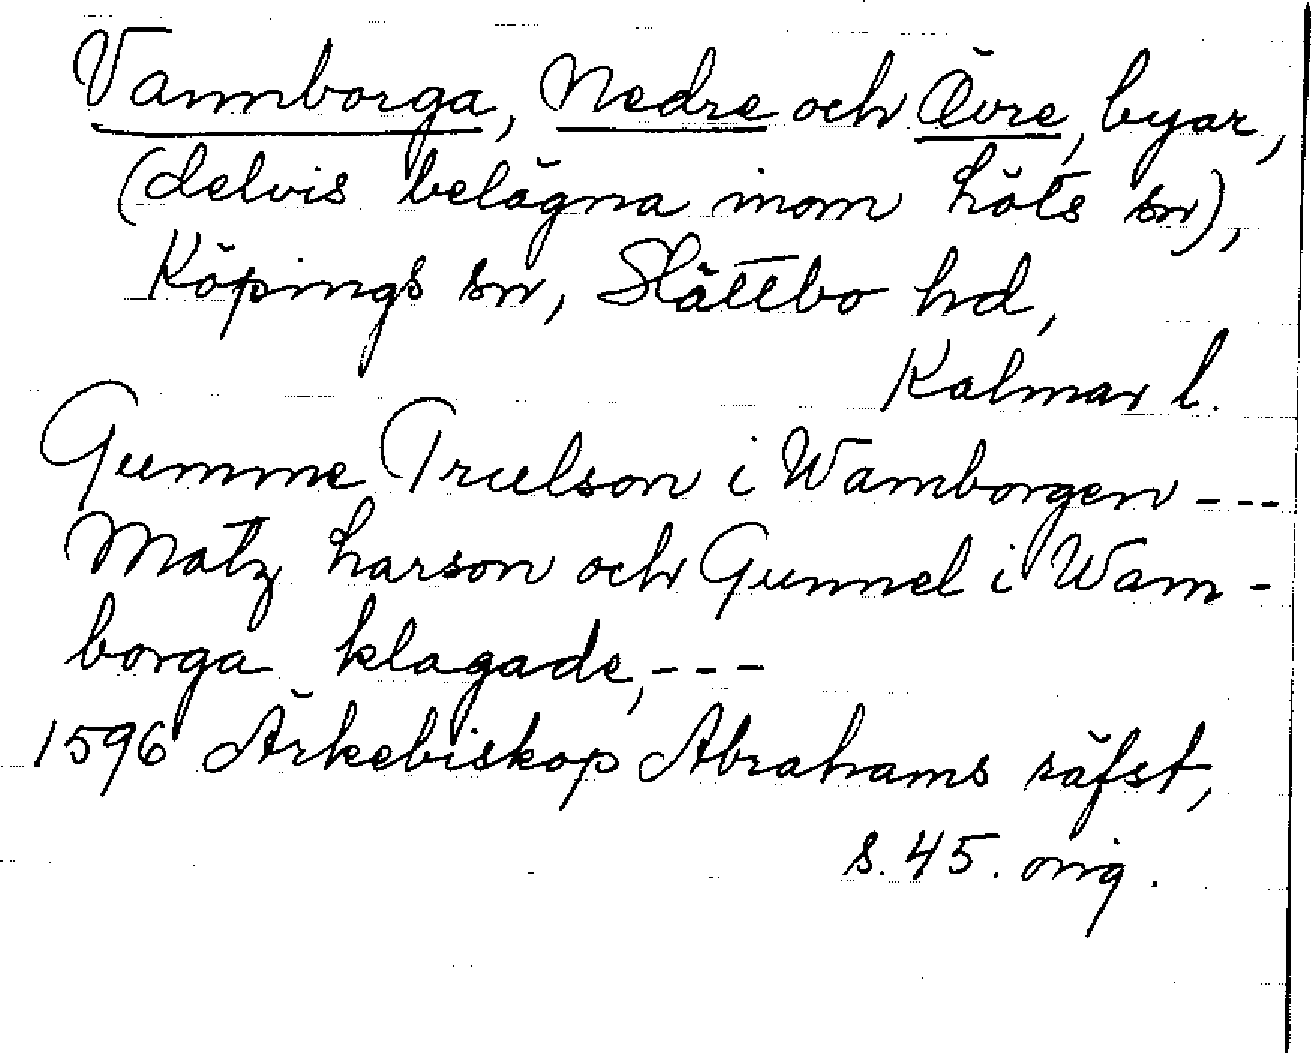 Vannborga, Nedre och Övre, byar,
(delvis belägna inom Löts sn),
Köpings sn, Slättbo hd,
Kalmar l.
Gumme Truelson i Wamborgen ---
Matz Larson och Gunnel i Wam-
borga klagade, ---
1596 Ärkebiskop Abrahams räfst,
s. 45. orig.